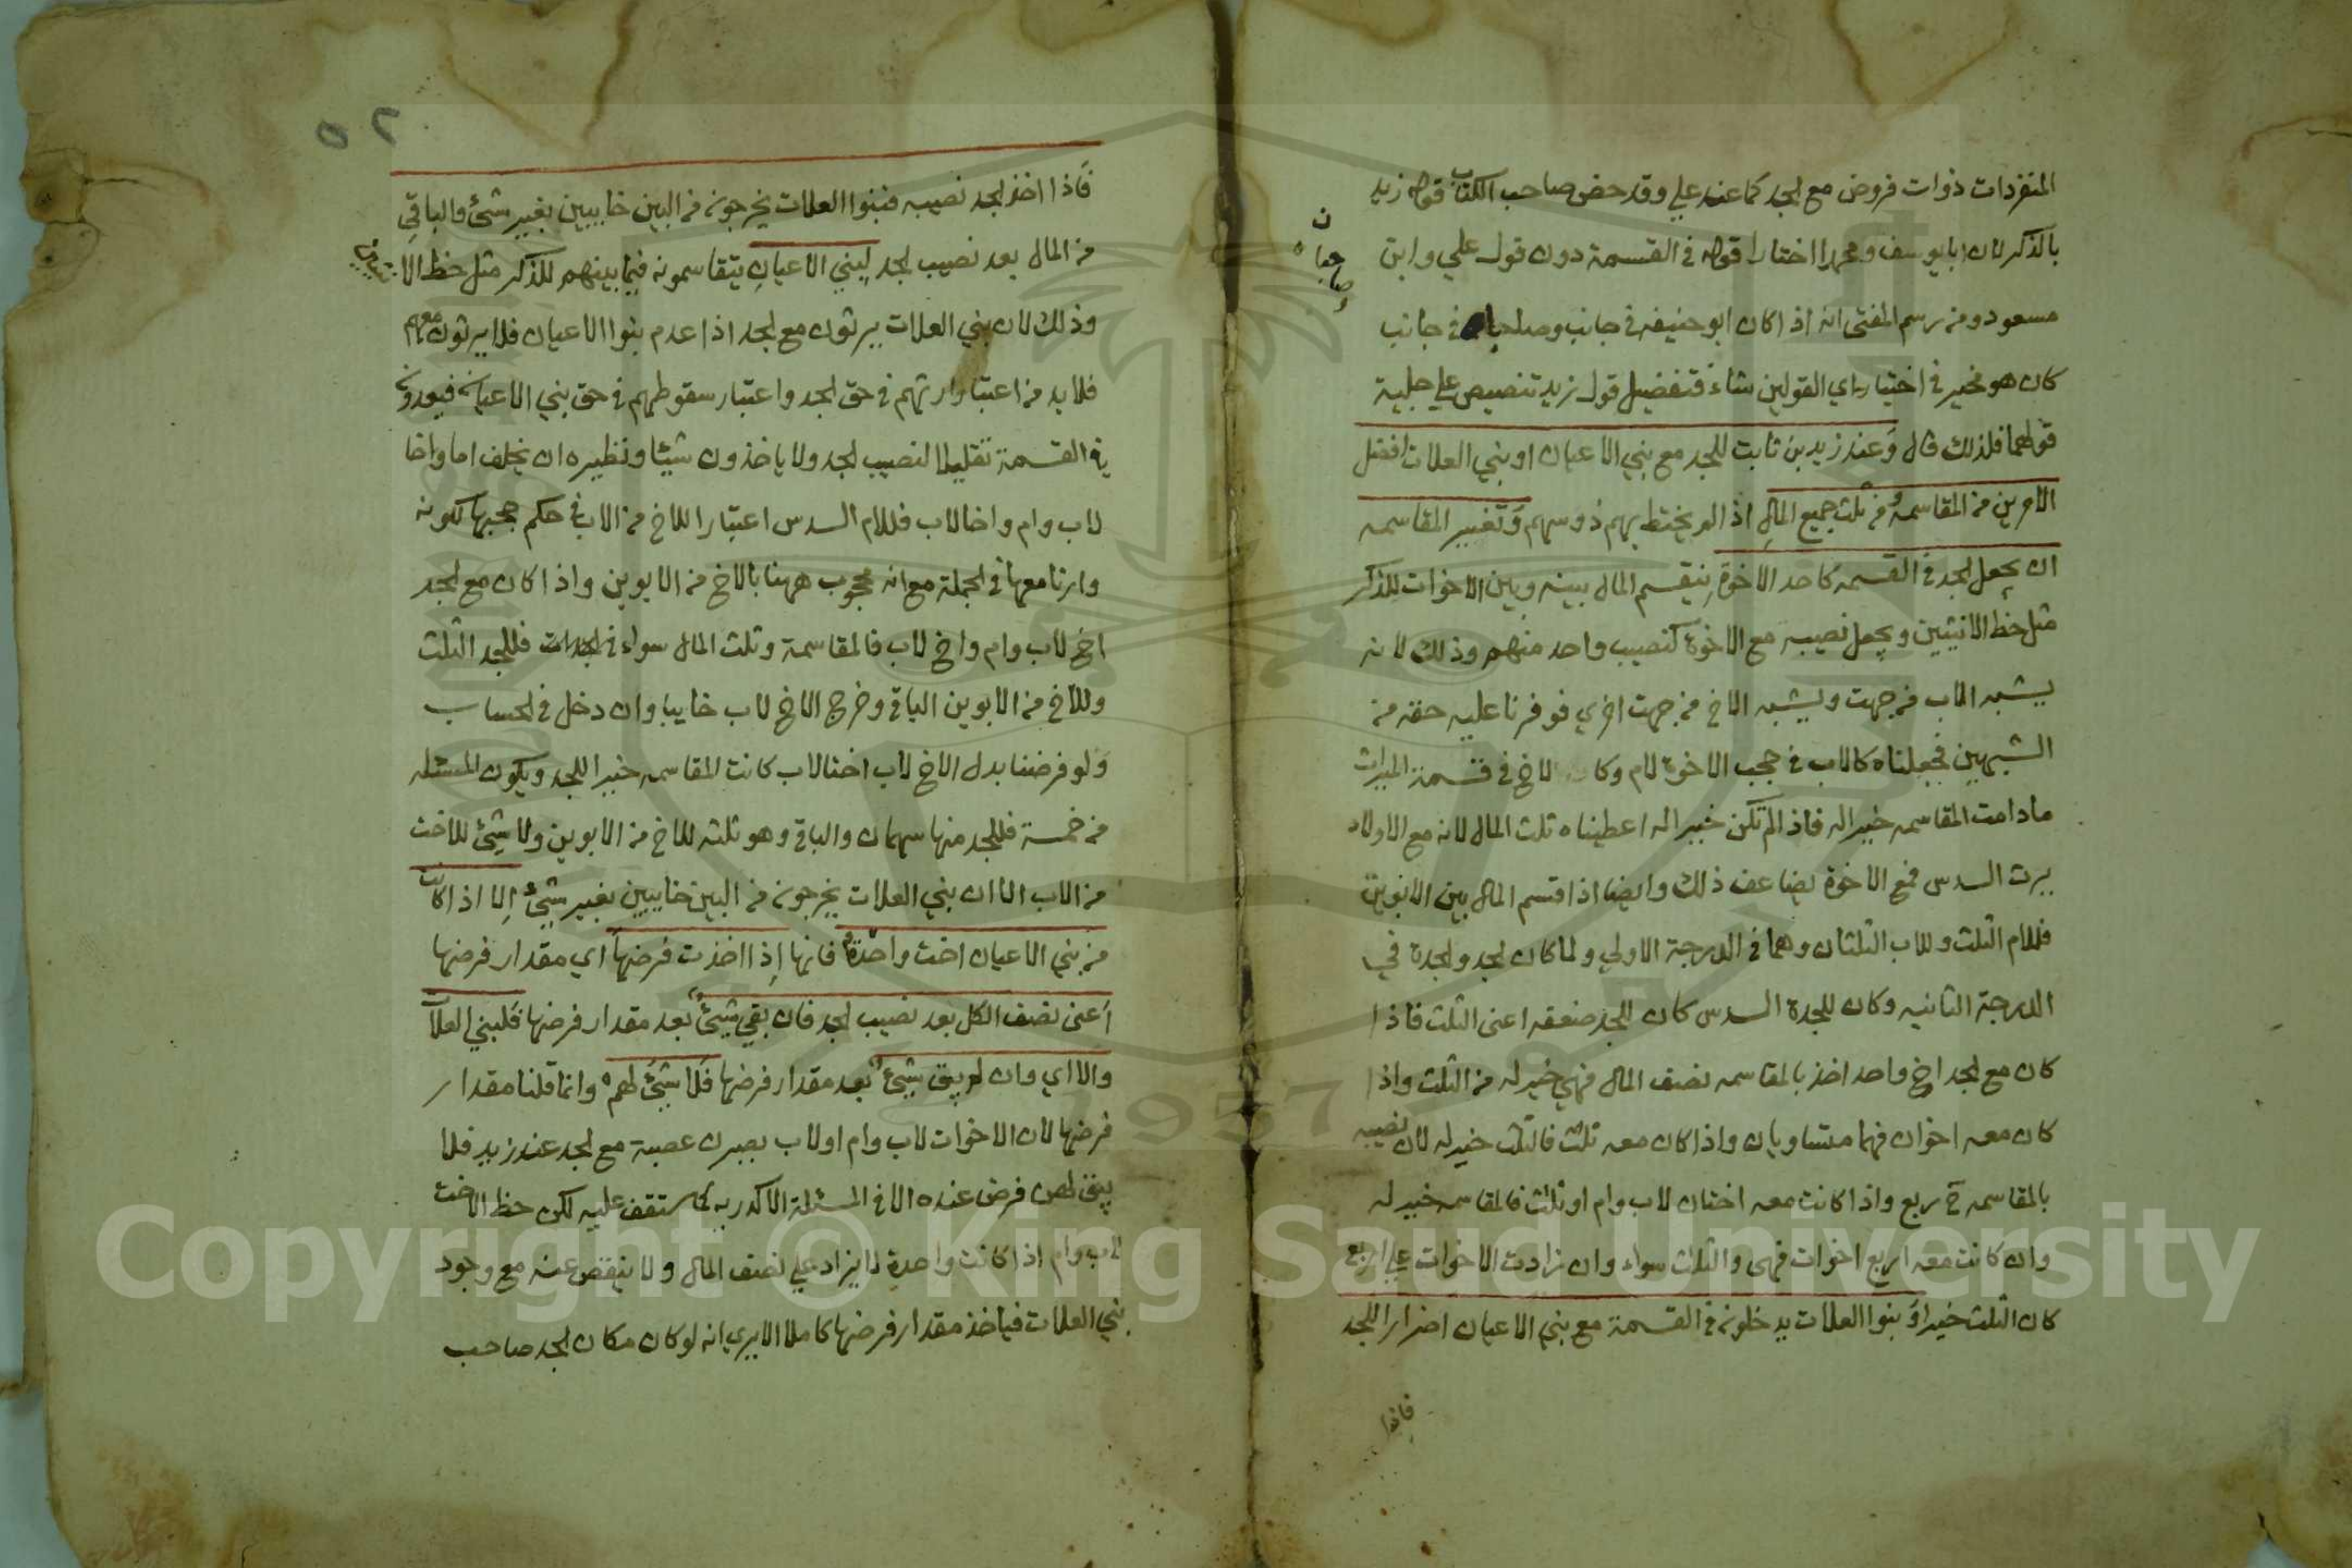 المنفردات ذوات فروض مع الجد كما عند علي وقد خص صاحب الكتاب قول زيد
بالذكر لان ابا يوسف ومحمدا اختارا قوله في القسمة دون قول علي وابن
مسعود ومن رسم المفتي انه اذا كان ابو حنيفه في جانب وصاحباه في جانب
صاحباه
ن
كان هو مخير في اختيار اي القولين شاء فتفضيل قول زيد تنصيص علي جلية
قولهما فلذلك قال وعند زيد بن ثابت للجد مع بني الاعيان او بني العلات افضل
الامرين من المقاسمة ومن ثلث جميع المال اذا لم يختلط بهم ذو سهم وتفسير المقاسمه
ان يجعل الجد في القسمه كاحد الاخوة فيقسم المال بينه وبين الاخوات للذكر
مثل حظ الانثيين ويجعل نصيبه مع الاخوة كنصيب واحد منهم وذلك لانه
يشبه الاب من جهت ويشبه الاخ من جهت اخري فوفرنا عليه حقه من
الشبهين فجعلناه كالاب في حجب الاخوة لام وكالاخ في قسمة الميراث
مادامت المقاسمه خيرا له فاذا لم تكن خيرا له اعطيناه ثلث المال لانه مع الاولاد
يرث السدس فمع الاخوة يضاعف ذلك وايضا اذا قسم المال بين الابوين
فللام الثلث وللاب الثلثان وهما في الدرجة الاولي ولما كان الجد والجدة في
الدرجة الثانيه وكان للجدة السدس كان للجد ضعفه اعنى الثلث فاذا
كان مع الجد اخ واحد اخذ بالمقاسمه نصف المال فهي خير له من الثلث واذا
كان معه اخوان فهما متساويان واذا كان معه ثلث فالثلث خير له لان نصيبه
بالمقاسمه ح ربع واذا كانت معه اختان لاب وام او ثلث فالمقاسمه خير له
وان كانت معه اربع اخوات فهي والثلث سواء وان زادت الاخوات علي اربع
كان الثلث خيرا وبنوا العلات يدخلون في القسمة مع بني الاعيان اضرارا للجد
فاذا
٥٢
فاذا اخذ الجد نصيبه فبنوا العلات يخرجون من البين خايبين بغير شئ والباقي
من المال بعد نصيب الجد لبني الاعيان يتقاسمونه فيما بينهم للذكر مثل حظ الانثيين
وذلك لان بني العلات يرثون مع الجد اذا عدم بنوا الاعيان فلا يرثون معهم
فلا بد من اعتبار ارثهم في حق الجد واعتبار سقوطهم في حق بني الاعيان فيعدون
في القسمة تقليلا لنصيب الجد ولا ياخذون شيئا ونظيره ان يخلف اما واخا
لاب وام واخا لاب فللام السدس اعتبارا للاخ من الاب في حكم حجبها لكونه
وارثا معها في الجملة مع انه محجوب ههنا بالاخ من الابوين واذا كان مع الجد
اخ لاب وام واخ لاب فالمقاسمة وثلث المال سواء فللجد الثلث
وللاخ من الابوين الباقي وخرج الاخ لاب خايبا وان دخل في الحساب
ولو فرضنا بدل الاخ لاب اختا لاب كانت المقاسمه خيرا للجد ويكون المسئله
من خمسة فللجد منها سهمان والباقي وهو ثلثه للاخ من الابوين ولا شئ للاخت
من الاب الا ان بني العلات يخرجون من البين خايبين بغير شئ الا اذا كانت
من بني الاعيان اخت واحدة فانها اذا اخذت فرضها اي مقدار فرضها
اعنى نصف الكل بعد نصيب الجد فان بقي شئ بعد مقدار فرضها فلبني العلات
والا اي وان لم يبق شئ بعد مقدار فرضها فلا شئ لهم وانما قلنا مقدار
فرضها لان الاخوات لاب وام او لاب يصيرن عصبة مع الجد عند زيد فلا
يبقى لهن فرض عنده الا في المسئلة الاكدريه كما ستقف عليه لكن حظ الاخت
لاب وام اذا كانت واحدة لا يزاد علي نصف المال ولا ينقص عنه مع وجود
بني العلات فياخذ مقدار فرضها كاملا الا يري انه لو كان مكان الجد صاحب
Copyright © King Saud University
1957